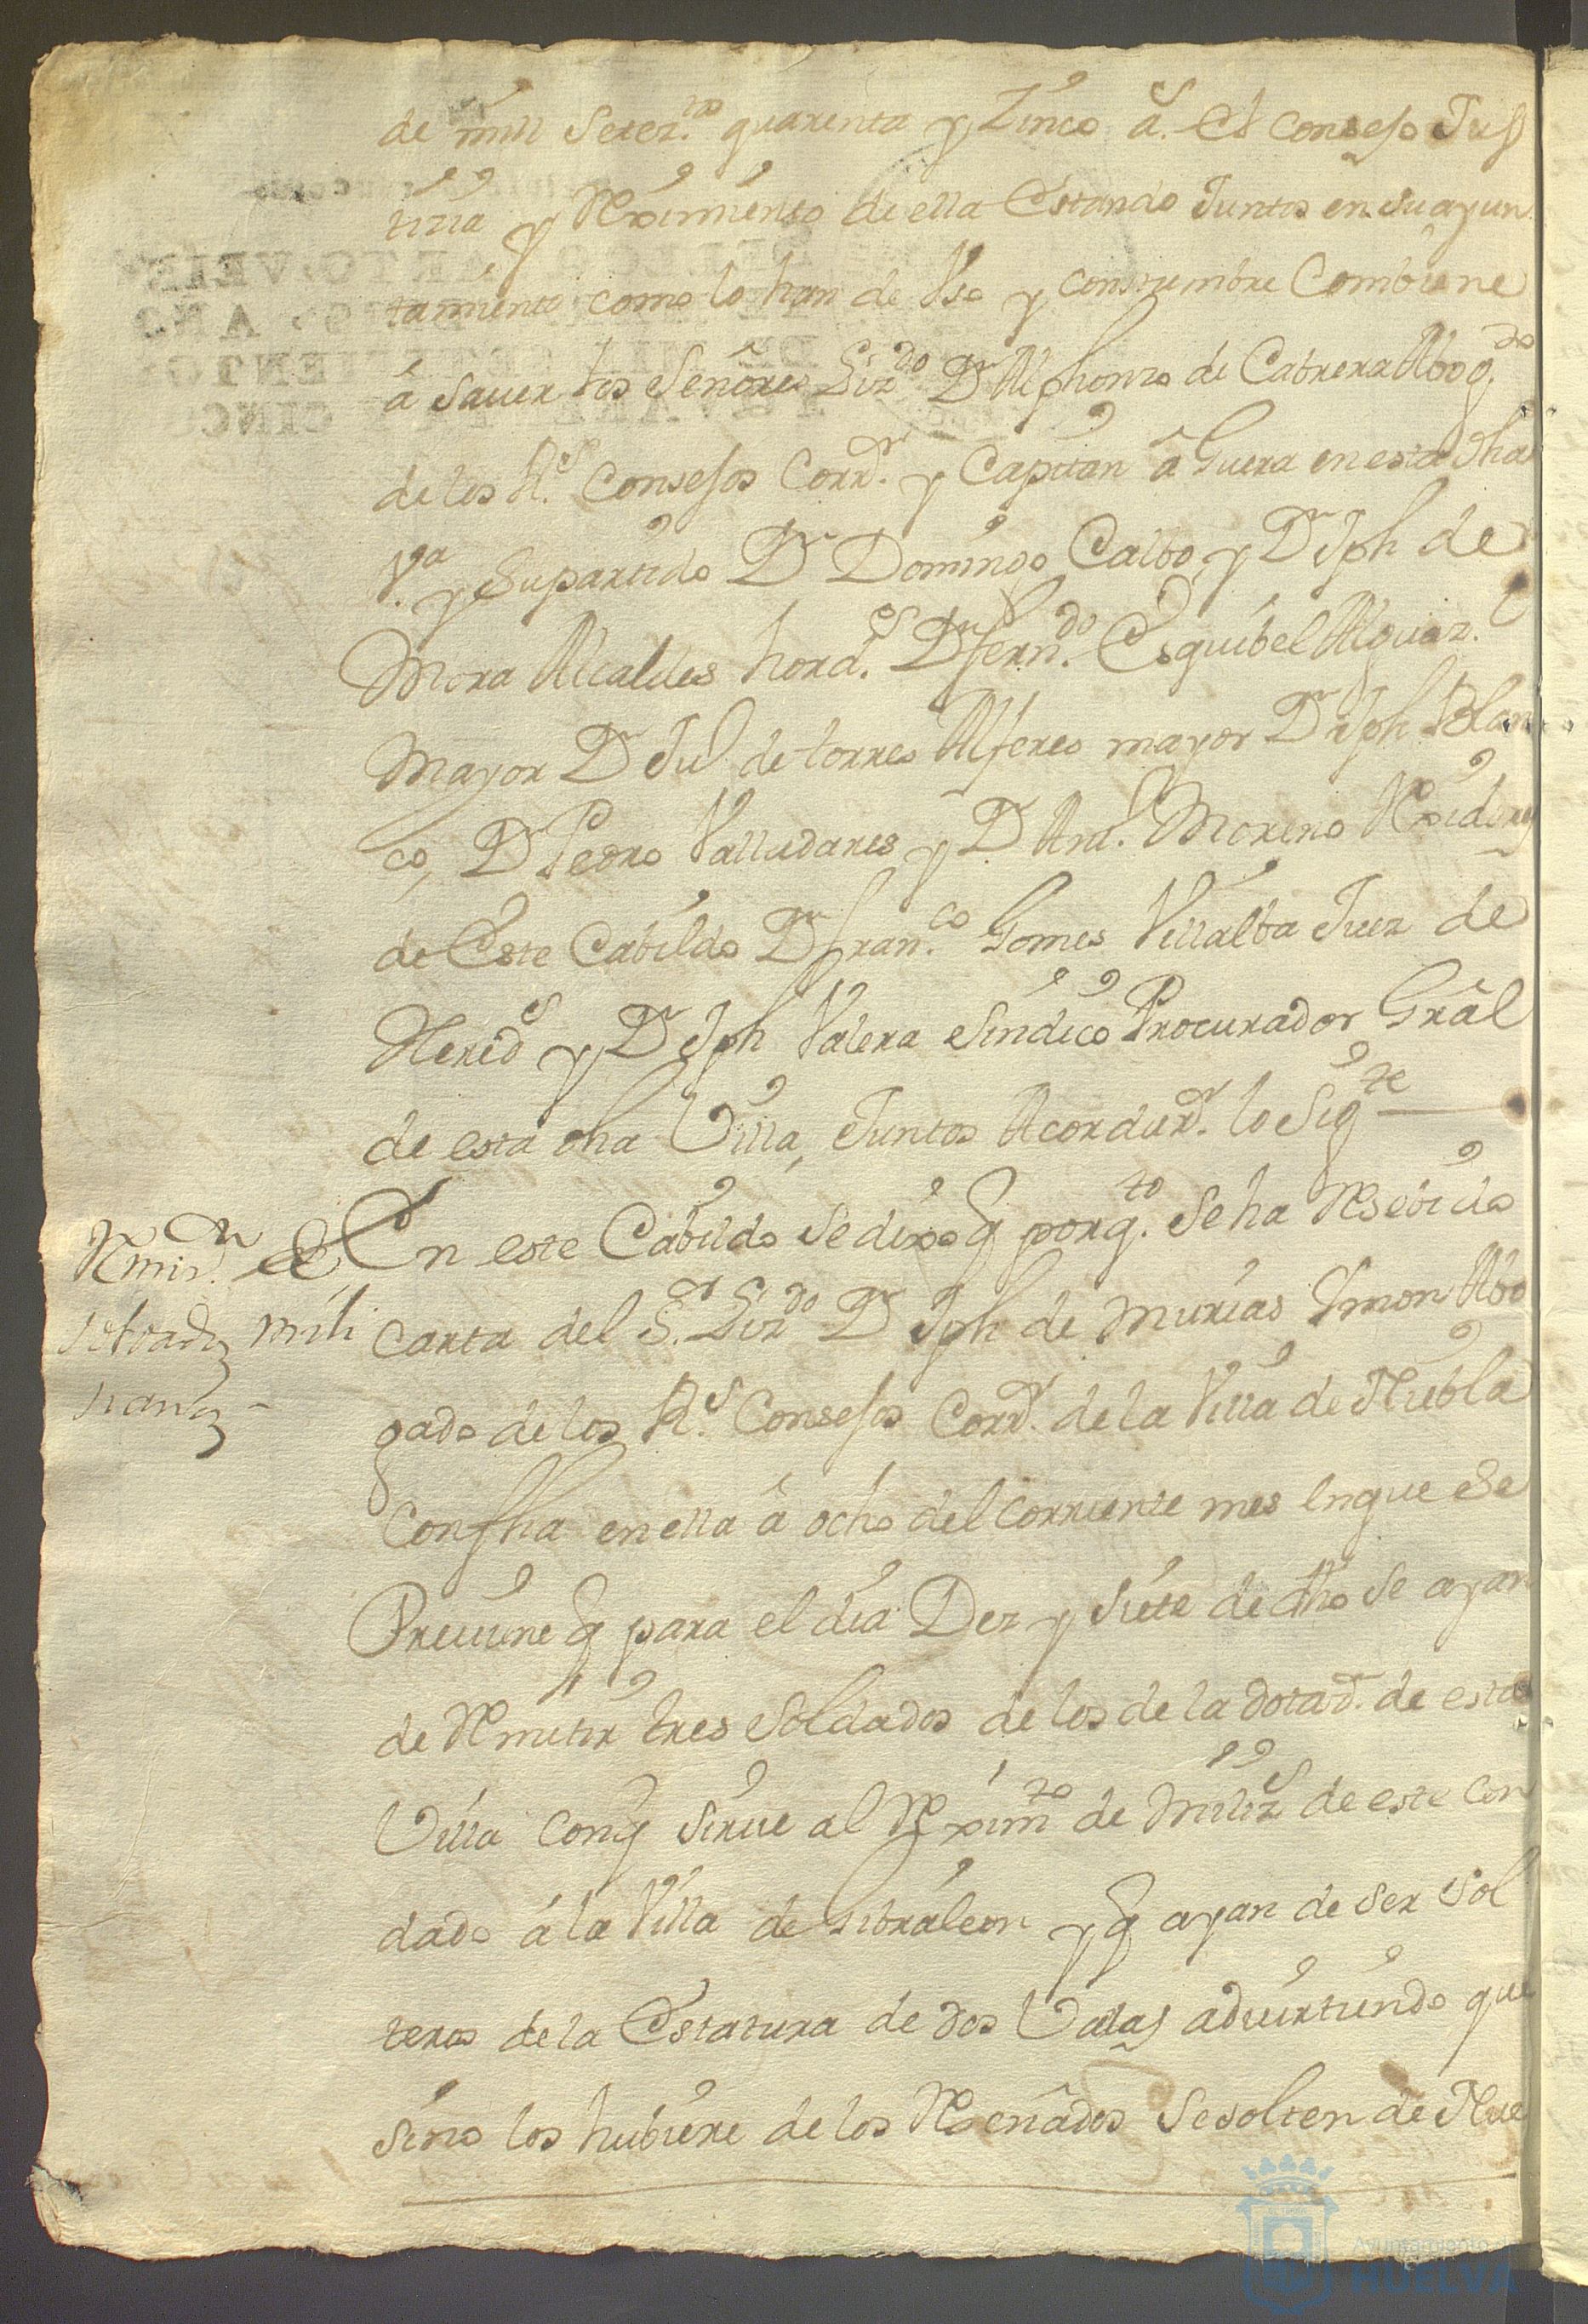 de mill Setez.tos quarenta y Zinco a.s el consejo Jus
tizia y Reximiento de ella Estando Juntos en su ayun
tamiento como lo han de Vso y constumbre Combiene
á sauer los Señores Lizdo Dn Alphonso de Cabrera Abog.do
de los R.s Consejos Corr.r y Capitan á Guera en esta dha
V.a y Supartido Dn Domingo Calbo y Dn Jph de
Mora Alcaldes hord.s Dn fern.do Esquibel Alguaz.l
Mayor Dn Jul de torres Alferes mayor Dn Jph Blan
co, Dn Pedro Valladares y Dn Ant. Moreno Rexidores
de Este Cabildo Dn fran.co Gomes Villalba Juez de
Herids y Dn Jph Valera Sindico Procurador Grâl
de esta dha Villa, Juntos Acordar.n lo Sigte
En este Cabildo se dixo q porq.to Se ha Resebido
Carta del S.r Lizdo Dn Jph de Murias Abo
gado de los R.s Consejos Corr.r de la Villa de Niebla
Con fha en ella â ocho del Corriente mes en que se
Preuiene q para el dia Diez y Siete de dho se ayan
de Remitir tres Soldados de los de la dotaz.n de esta
Villa con q sirue al Reximto de Milizs de este Con
dado á la Villa de Gibraleon y q ayan de ser Sol
teros de la Estatura de dos Varas aduirtiendo que
sino los hubiere de los Reseñados Se solten de Nue
mili
Ayuntamiento
HUELVA